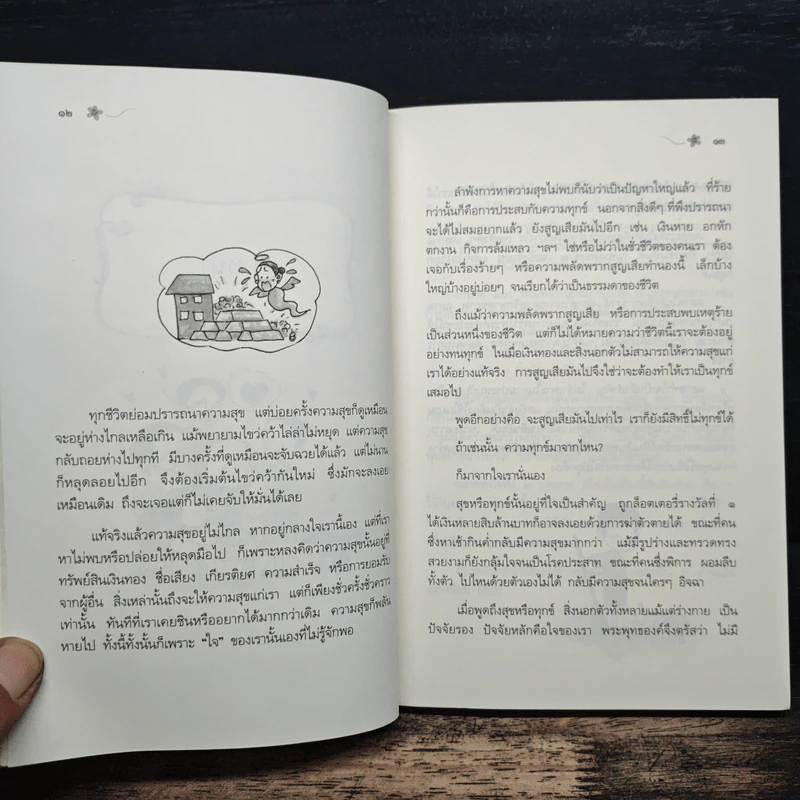 ๑๒
ทุกชีวิตย่อมปรารถนาความสุข แต่บ่อยครั้งความสุขก็ดูเหมือน
จะอยู่ห่างไกลเหลือเกิน แม้พยายามไขว่คว้าไล่ล่าไม่หยุด แต่ความสุข
กลับถอยห่างไปทุกที มีบางครั้งที่ดูเหมือนจะจับฉวยได้แล้ว แต่ไม่นาน
ก็หลุดลอยไปอีก จึงต้องเริ่มต้นไขว่คว้ากันใหม่ ซึ่งมักจะลงเอย
เหมือนเดิม ถึงจะเจอแต่ก็ไม่เคยจับให้มั่นได้เลย
แท้จริงแล้วความสุขอยู่ไม่ไกล หากอยู่กลางใจเรานี้เอง แต่ที่เรา
หาไม่พบหรือปล่อยให้หลุดมือไป ก็เพราะหลงคิดว่าความสุขนั้นอยู่ที่
ทรัพย์สินเงินทอง ชื่อเสียง เกียรติยศ ความสำเร็จ หรือการยอมรับ
จากผู้อื่น สิ่งเหล่านั้นถึงจะให้ความสุขแก่เรา แต่ก็เพียงชั่วครั้งชั่วคราว
เท่านั้น ทันทีที่เราเคยชินหรืออยากได้มากกว่าเดิม ความสุขก็พลัน
หายไป ทั้งนี้ทั้งนั้นก็เพราะ “ใจ” ของเรานั้นเองที่ไม่รู้จักพอ
๑๓
ลำพังการหาความสุขไม่พบก็นับว่าเป็นปัญหาใหญ่แล้ว ที่ร้าย
กว่านั้นก็คือการประสบกับความทุกข์ นอกจากสิ่งดีๆ ที่พึงปรารถนา
จะได้ไม่สมอยากแล้ว ยังสูญเสียมันไปอีก เช่น เงินหาย อกหัก
ตกงาน กิจการล้มเหลว ฯลฯ ใช่หรือไม่ว่าในชั่วชีวิตของคนเรา ต้อง
เจอกับเรื่องร้ายๆ หรือความพลัดพรากสูญเสียทำนองนี้ เล็กบ้าง
ใหญ่บ้างอยู่บ่อยๆ จนเรียกได้ว่าเป็นธรรมดาของชีวิต
ถึงแม้ว่าความพลัดพรากสูญเสีย หรือการประสบพบเหตุร้าย
เป็นส่วนหนึ่งของชีวิต แต่ก็ไม่ได้หมายความว่าชีวิตนี้เราจะต้องอยู่
อย่างทนทุกข์ ในเมื่อเงินทองและสิ่งนอกตัวไม่สามารถให้ความสุขแก่
เราได้อย่างแท้จริง การสูญเสียมันไปจึงใช่ว่าจะต้องทำให้เราเป็นทุกข์
เสมอไป
พูดอีกอย่างคือ จะสูญเสียมันไปเท่าไร เราก็ยังมีสิทธิ์ไม่ทุกข์ได้
ถ้าเช่นนั้น ความทุกข์มาจากไหน?
ก็มาจากใจเรานั่นเอง
สุขหรือทุกข์นั้นอยู่ที่ใจเป็นสำคัญ ถูกล็อตเตอรี่รางวัลที่ ๑
ได้เงินหลายสิบล้านบาทก็อาจลงเอยด้วยการฆ่าตัวตายได้ ขณะที่คน
ซึ่งหาเช้ากินค่ำกลับมีความสุขมากกว่า แม้มีรูปร่างและทรวดทรง
สวยงามก็ยังกลุ้มใจจนเป็นโรคประสาท ขณะที่คนซึ่งพิการ ผอมลีบ
ทั้งตัว ไปไหนด้วยตัวเองไม่ได้ กลับมีความสุขจนใครๆ อิจฉา
เมื่อพูดถึงสุขหรือทุกข์ สิ่งนอกตัวทั้งหลายแม้แต่ร่างกาย เป็น
ปัจจัยรอง ปัจจัยหลักคือใจของเรา พระพุทธองค์จึงตรัสว่า ไม่มี